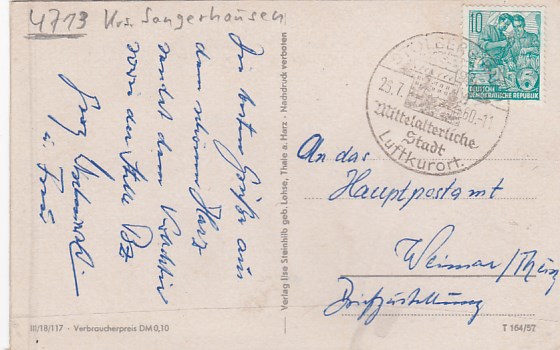 4713 Krs. Sangerhausen
Die besten Grüße aus
dem schönen Harz
sendet dem
sowie der
Georg
u. Frau
Verlag Ilse Steinhilb geb. Lohse, Thale a. Harz - Nachdruck verboten
III/18/117 - Verbraucherpreis DM 0,10
10
DEUTSCHE
DEMOKRATISCHE REPUBLIK
STOLBERG
25.7. 60.-11
Mittelalterliche
Stadt
Luftkurort.
An das
Hauptpostamt
Weimar/Thür
Briefzustellung
T 164/57